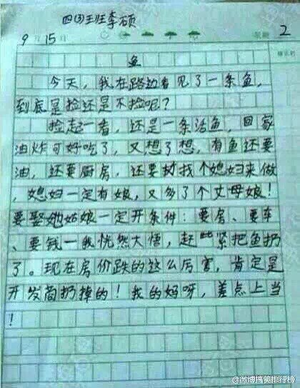 四(2)班李硕
9月15日
2
鱼
今天,我在路边看见了一条鱼,
到底是捡还是不捡呢?
捡起一看,还是一条活鱼,回家
油炸可好吃了,又想了想,有鱼还要
油,还要厨房,还要找个媳妇来做
,媳妇一定有娘,又多了个丈母娘!
要娶她姑娘一定开条件:要房、要车
、要钱—我恍然大悟,赶紧把鱼扔
了。现在房价跌的这么厉害,肯定是
开发商扔掉的!我的妈呀,差点上当
!